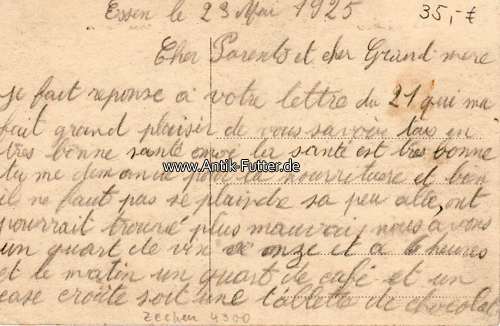 Essen le 23 Mai 1925
35,-€
Cher Parents et cher Grand mere
je fait reponse a votre lettre du 21 qui ma
fait grand plaisir de vous savoir tous en
tres bonne santé la santé est tres bonne
www.Antik-Futter.de
tu me demande pour la nourriture é bon
il ne faut pas se plaindre sa peu allé, ont
pourrait trouvé plus mauvais, nous avons
un quart de vin a onze et a 6 heures
et le matin un quart de café et un
case croûte soit une tablette de chocolat
Zechen 4300